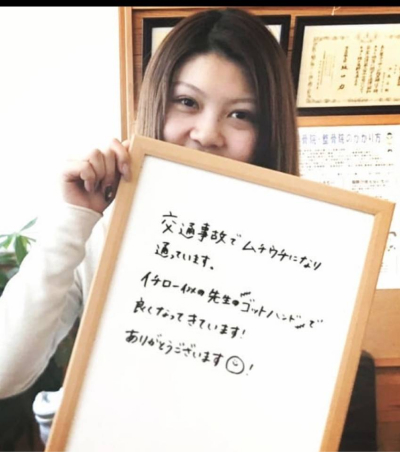 整骨院のかかり方
交通事故でムチウチになり
通っています。
イチロー似の先生のゴットハンドで
良くなってきています!
ありがとうございます!